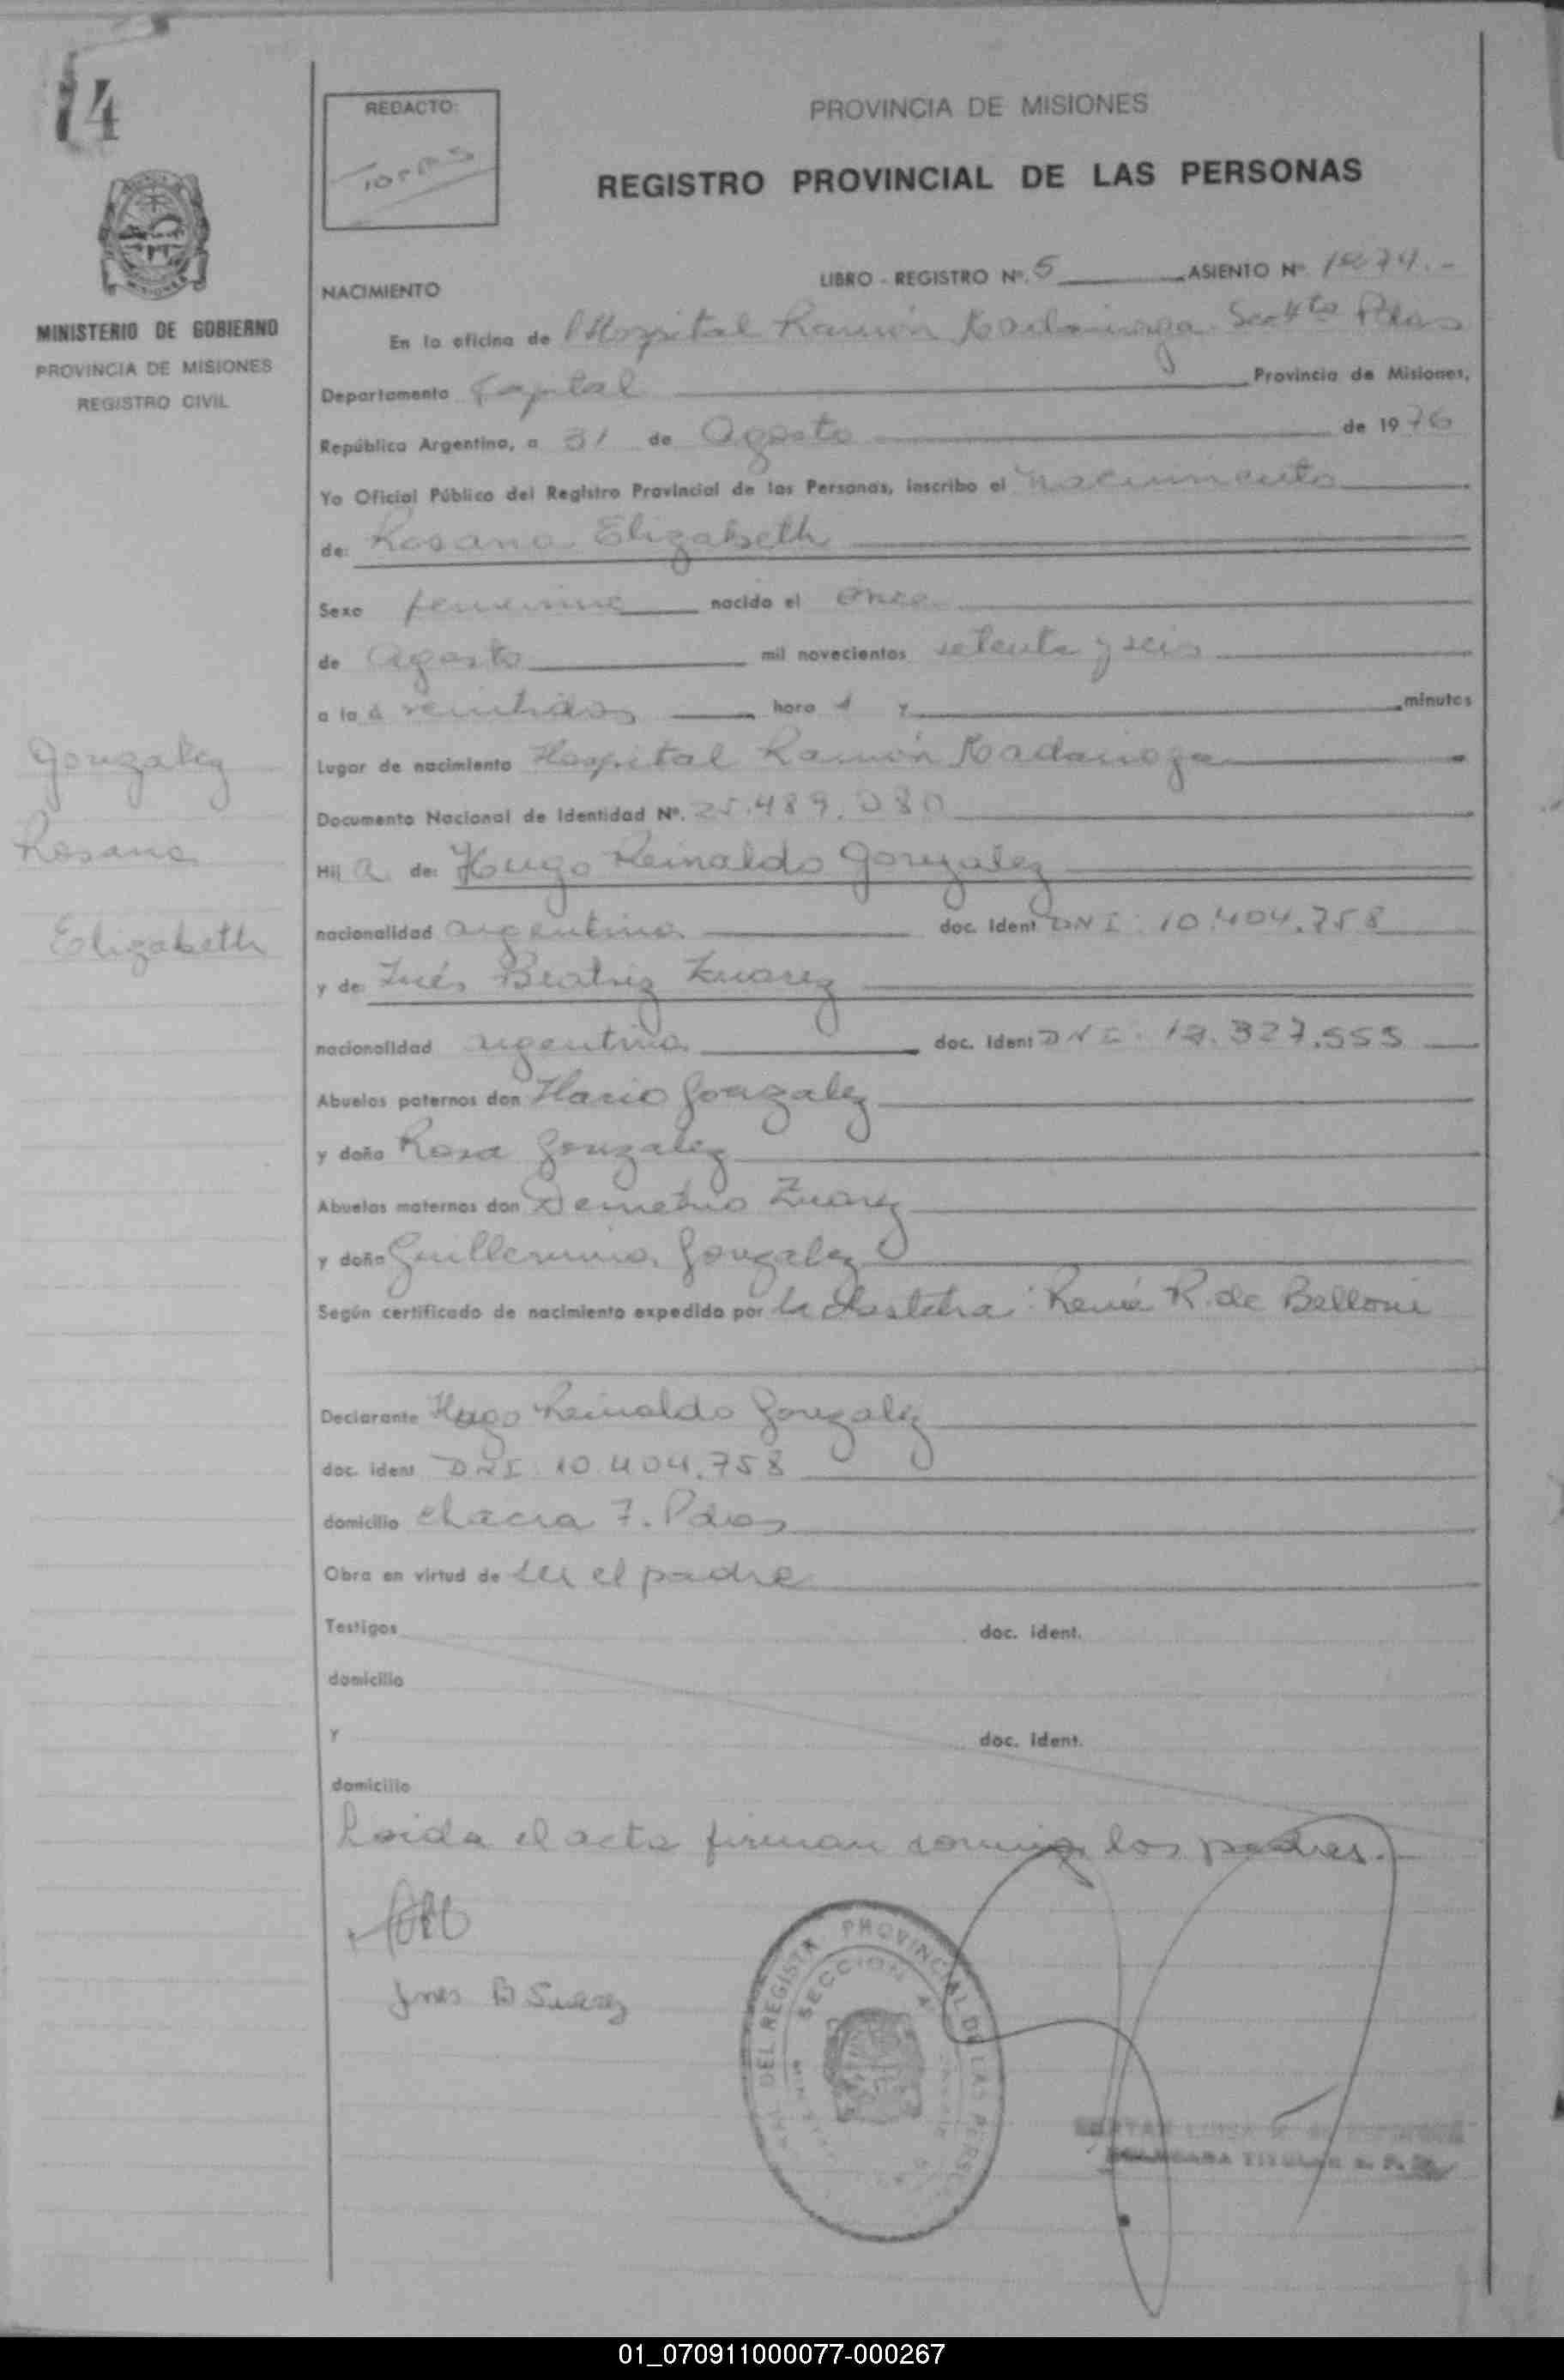 14
REDACTO:
Torres
PROVINCIA DE MISIONES
REGISTRO PROVINCIAL DE LAS PERSONAS
MISIONES
MINISTERIO DE GOBIERNO
PROVINCIA DE MISIONES
REGISTRO CIVIL
NACIMIENTO
LIBRO - REGISTRO Nº. 5 ASIENTO Nº
En la oficina de Hospital Ramón Madariaga Secc 4ta Pdas
Departamento Capital Provincia de Misiones,
República Argentina, a 31 de Agosto de 1976
Yo Oficial Público del Registro Provincial de las Personas, inscribo el nacimiento
de: Rosana Elizabeth
Sexo femenino nacido el once
de agosto mil novecientos setenta y seis
a la s veintidos hora s y minutos
Lugar de nacimiento Hospital Ramón Madariaga
Documento Nacional de Identidad Nº. 25.489.080
Gonzalez
Rosana
Elizabeth
Hij a de: Hugo Reinaldo Gonzalez
nacionalidad argentina doc. Ident DNI: 10.404.758
y de: Inés Beatriz Zuarez
nacionalidad argentina doc. Ident DNI: .327.555
Abuelos paternos don Gonzalez
y doña Rosa Gonzalez
Abuelos maternos don Demetrio Zuarez
y doña Guillermina Gonzalez
Según certificado de nacimiento expedido por la obstetra: René R. de Belloni
Declarante Hugo Reinaldo Gonzalez
doc. ident DNI 10.404.758
domicilio chacra 7. Pdas
Obra en virtud de ser el padre
Testigos doc. ident.
domicilio
y doc. ident.
domicilio
Leida el acta firman conmigo los padres.
Jnes B Suarez
DEL REGISTR PROVINCIAL DE LAS PERSO
SECCION 4
TITULAR
01_070911000077-000267